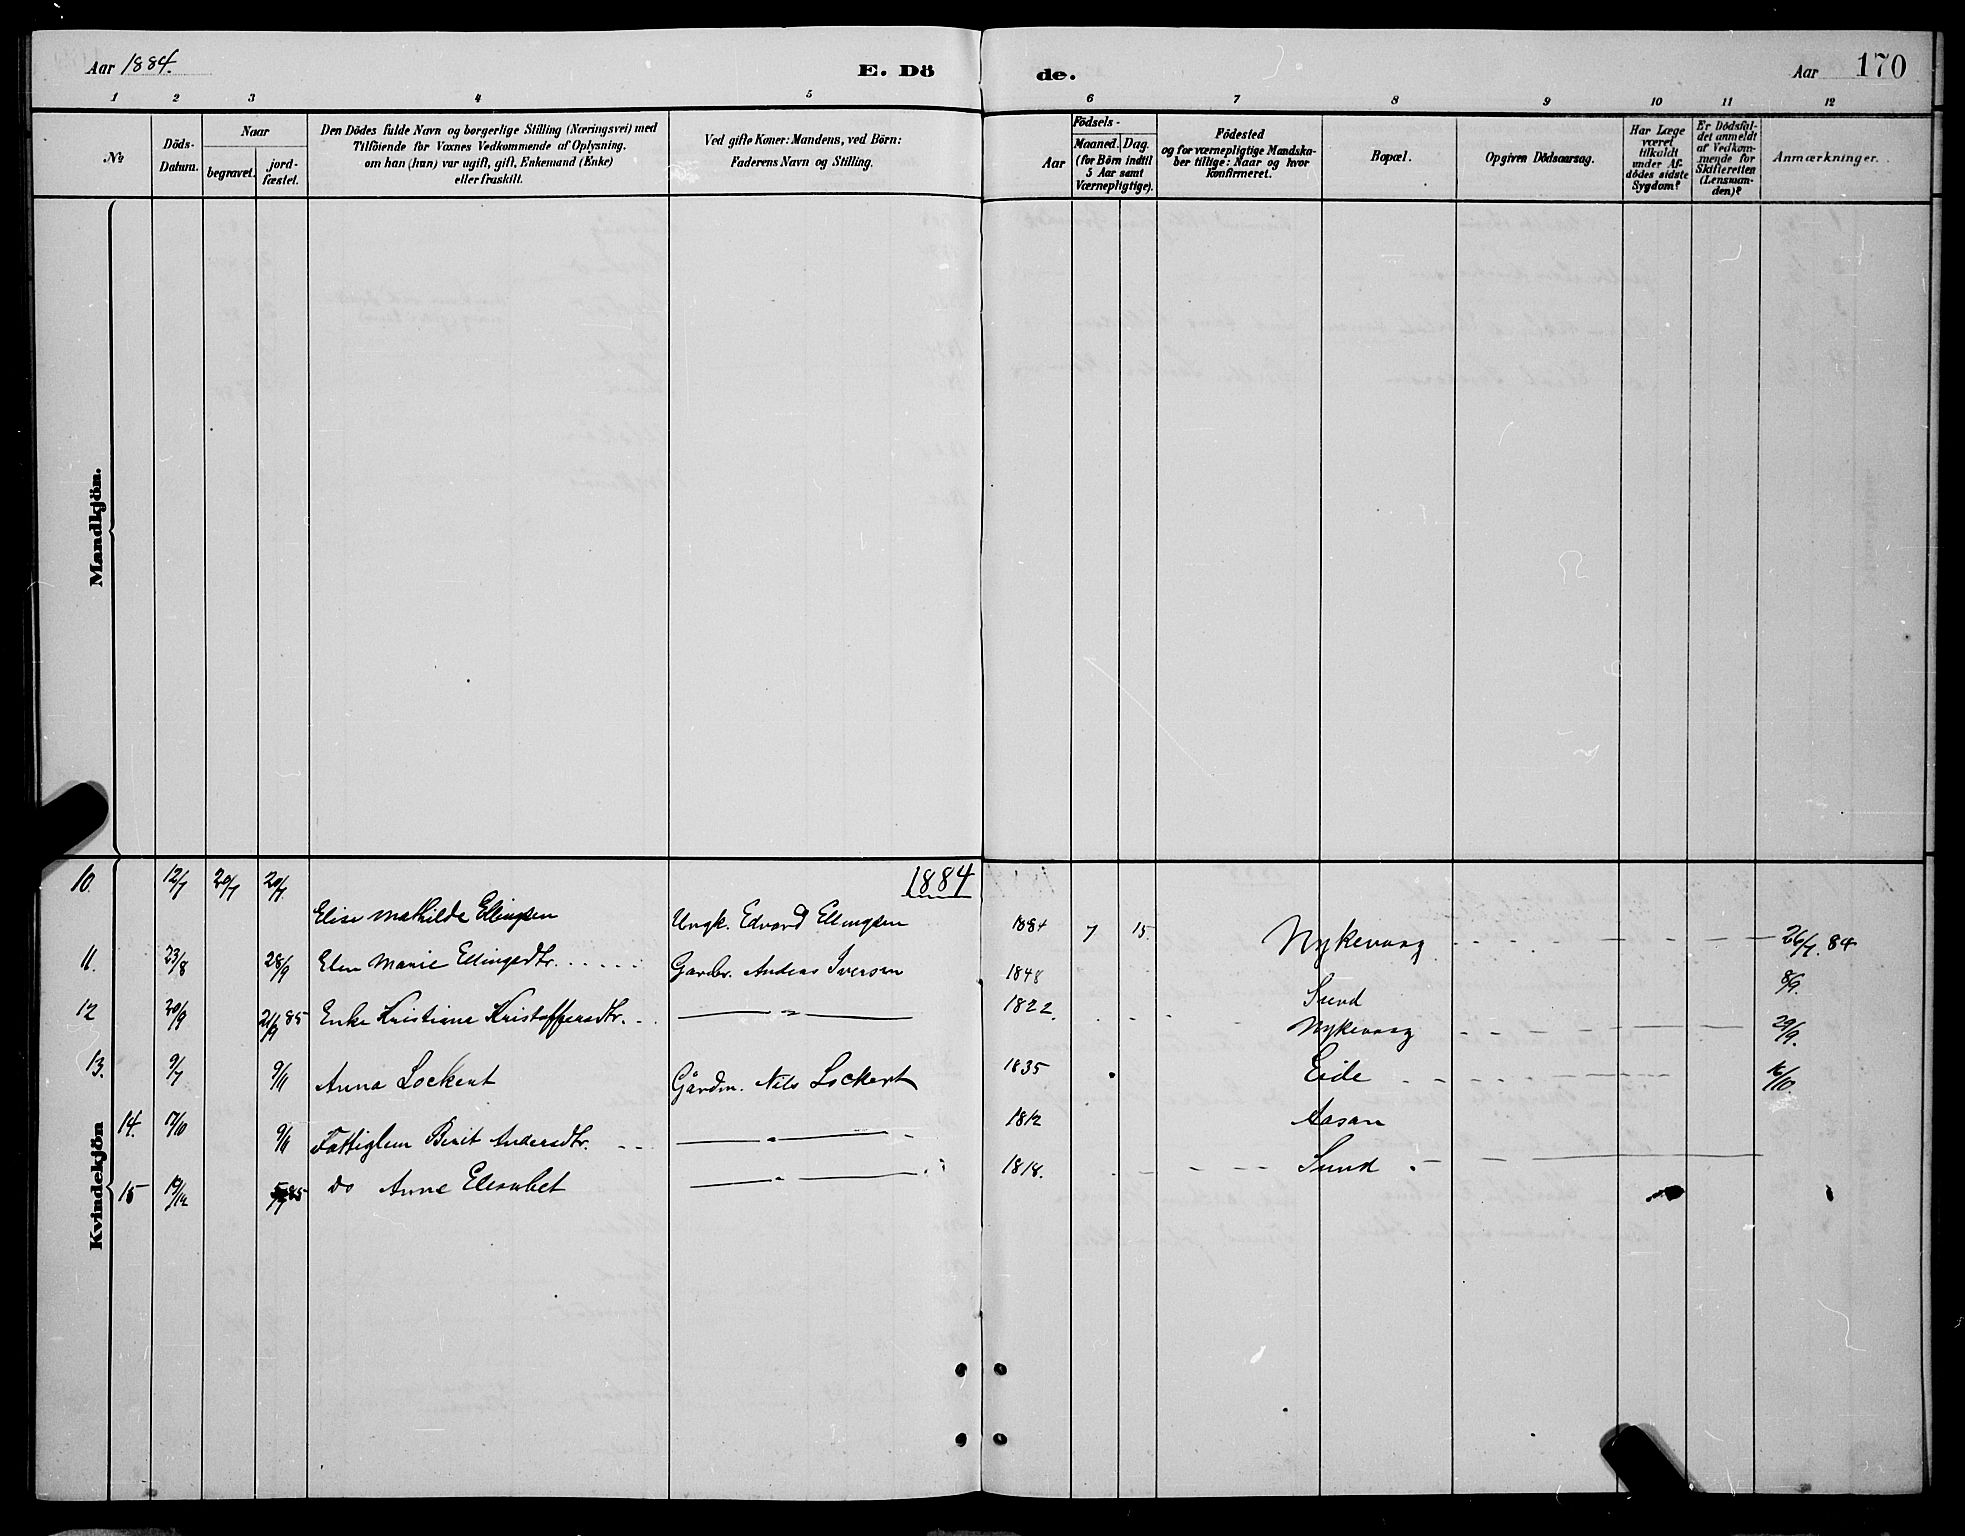 Aar 1884.
E. Dö
de.
Aar 170
1 2 3 4 5 6 7 8 9 10 11 12
No
Döds-
Datum.
Naar
begravet.
jord-
fæstet.
Den Dödes fulde Navn og borgerlige Stilling (Næringsvei) med
Tilföiende for Voxnes Vedkommende af Oplysning.
om han (hun) var ugift, gift, Enkemand (Enke)
eller fraskilt.
Ved gifte Koner: Mandens, ved Börn:
Faderens Navn og Stilling.
Aar
Födsels-
Maaned. Dag.
(for Börn indtil
5 Aar samt
Værnepligtige).
Födested
og for værnepligtige Mandska-
ber tillige: Naar og hvor
Konfirmeret.
Bopæl.
Opgiven Dödsaarsag.
Har Læge
været
tilkaldt
under Af-
dödes sidste
Sygdom?
Er Dödsfal-
det anmeldt
af Vedkom-
mende for
Skifteretten
(Lensman-
den)?
Anmærkninger.
Mandkjön.
Kvindekjön
1884
10. 12/7 20/7 20/7. Elise Mathilde Ellingsen Ungk. Edvard Ellingsen 1884 7 15. Nykevaag 26/7. 84
11. 23/8 28/9 Elen Marie Ellingsdtr. Gaardbr. Andeas Iversen 1848 Sund 8/9.
12 20/9 21/9 85 Enke Kristiane Kristoffersdtr. — " — 1822. Nykevaag 29/9.
13. 9/7 9/11 Anna Lockert Gårdm. Nils Lockert 1835 Eide 16/10.
14. 17/10 9/11 Fattiglem Berit Andersdtr. — " — 1812 Aasan
15 19/12 85 do Anne Elesabet — " — 1818. Sund